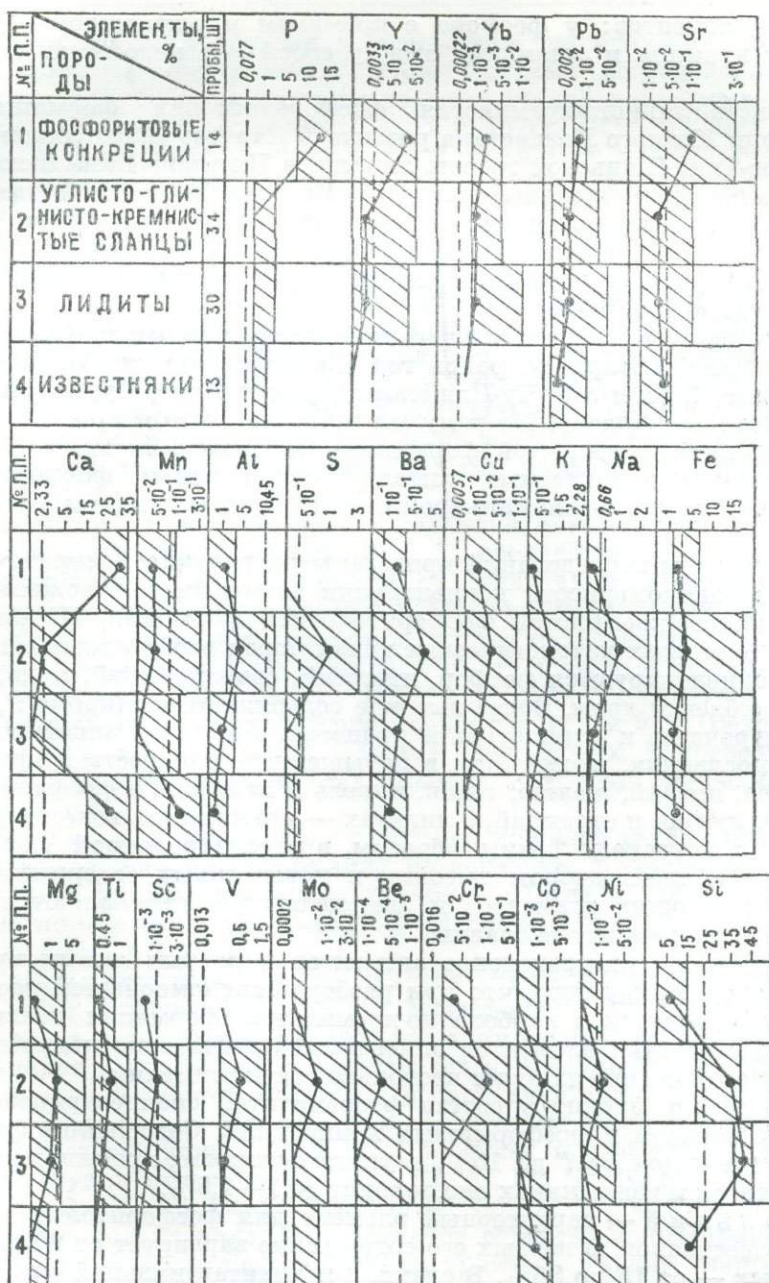 № П.П.
ЭЛЕМЕНТЫ, %
ПОРО-
ДЫ
ПРОБЫ, ШТ
P Y Yb Pb Sr
0,077 1 5 10 15
0,0033 5·10⁻³ 5·10⁻²
0,00022 1·10⁻³ 5·10⁻³ 1·10⁻²
0,002 1·10⁻² 5·10⁻²
1·10⁻² 5·10⁻² 1·10⁻¹ 3·10⁻¹
1 ФОСФОРИТОВЫЕ КОНКРЕЦИИ 14
2 УГЛИСТО-ГЛИ-
НИСТО-КРЕМНИС-
ТЫЕ СЛАНЦЫ 34
3 ЛИДИТЫ 30
4 ИЗВЕСТНЯКИ 13
№ П.П. Ca Mn Al S Ba Cu K Na Fe
2,33 5 15 25 35
5·10⁻² 1·10⁻¹ 3·10⁻¹
1 5 10,45
5·10⁻¹ 1 3
1·10⁻¹ 5·10⁻¹
0,0057 1·10⁻² 5·10⁻² 1·10⁻¹
5·10⁻¹ 1,5 2,28
0,66 1 2
1 5 10 15
1
2
3
4
№ П.П. Mg Ti Sc V Mo Be Cr Co Ni Si
1 5
0.45 1
1·10⁻³ 3·10⁻³
0,013 0,5 1,5
0,0002 1·10⁻² 3·10⁻²
1·10⁻⁴ 5·10⁻⁴ 1·10⁻³
0,016 5·10⁻² 1·10⁻¹ 5·10⁻¹
1·10⁻³ 5·10⁻³
1·10⁻² 5·10⁻²
5 15 25 35 45
1
2
3
4